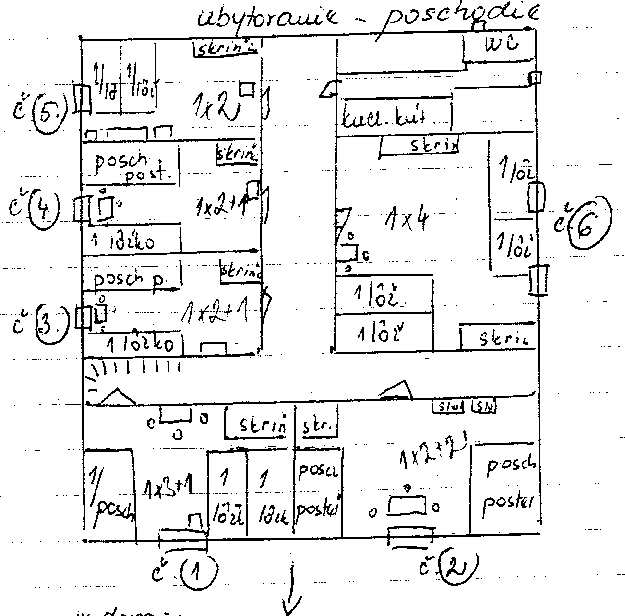 ubytovanie - poschodie
skriň
WC
1/lôž
1x2
č. 5.
kuch. kút.
skriň
posch
post.
skriň
1/lôž
č 4.
1x2+1
1x4
č. 6
1 lôžko
1/lôž
posch p.
skriň
1x2+1
1/lôž.
č 3.
1 lôžko
1/lôž
skriň
skriň
skr.
1x2+2
1/
posch
1x3+1
1
lôž
1
posch
posteľ
posch
posteľ
č. 1
č. 2